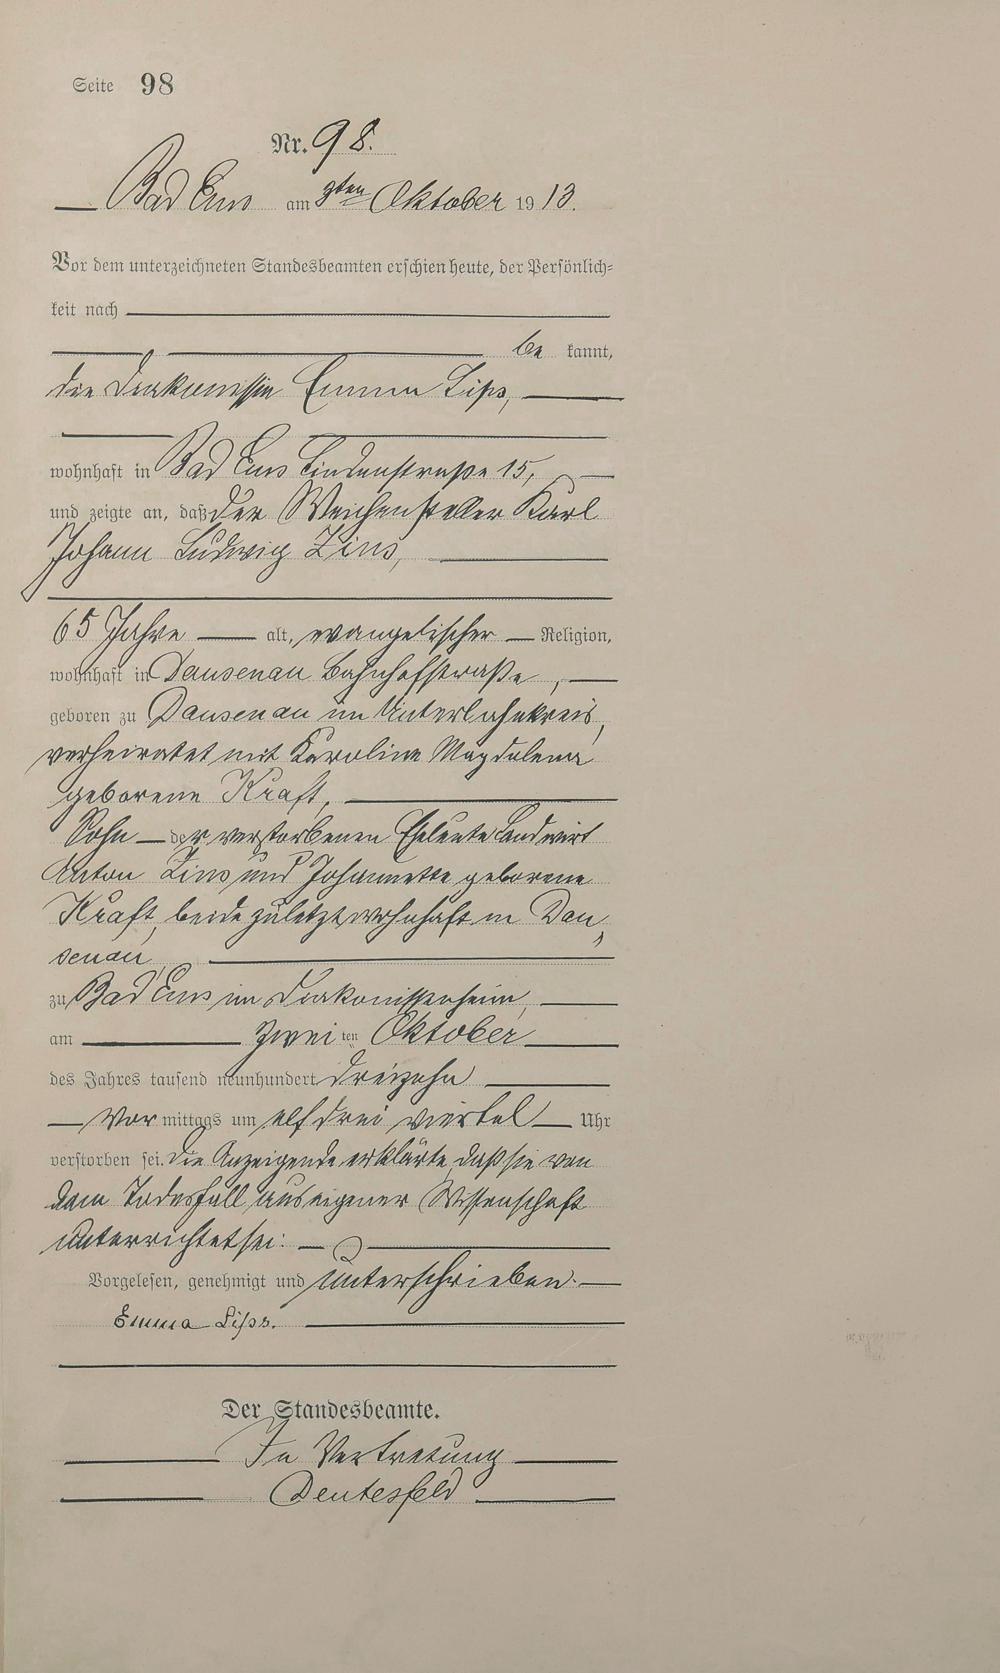 Seite 98
Nr. 98.
Bad Ems am 3ten Oktober 1913.
Vor dem unterzeichneten Standesbeamten erschien heute, der Persönlich-
keit nach
be kannt,
die Diakonissin Emma Lips,
wohnhaft in Bad Ems Lindenstraße 15,
und zeigte an, daß der Weichensteller Karl
Johann Ludwig Zins,
65 Jahre alt, evangelischer Religion,
wohnhaft in Dausenau Bahnhofstraße,
geboren zu Dausenau im Unterlahnkreis,
verheiratet mit Karoline Magdalena
geborene Kraft,
Sohn der verstorbenen Eheleute Landwirt
Anton Zins und Johannette geborene
Kraft, beide zuletzt wohnhaft in Dau„
senau,
zu Bad Ems im Diakonissenheim,
am zwei ten Oktober
des Jahres tausend neunhundert dreizehn
Vor mittags um elf drei viertel Uhr
verstorben sei. Die Anzeigende erklärte, daß sie von
dem Todesfall aus eigener Wissenschaft
unterrichtet sei.
Vorgelesen, genehmigt und unterschrieben.
Emma Lips.
Der Standesbeamte.
In Vertretung
Deutesfeld